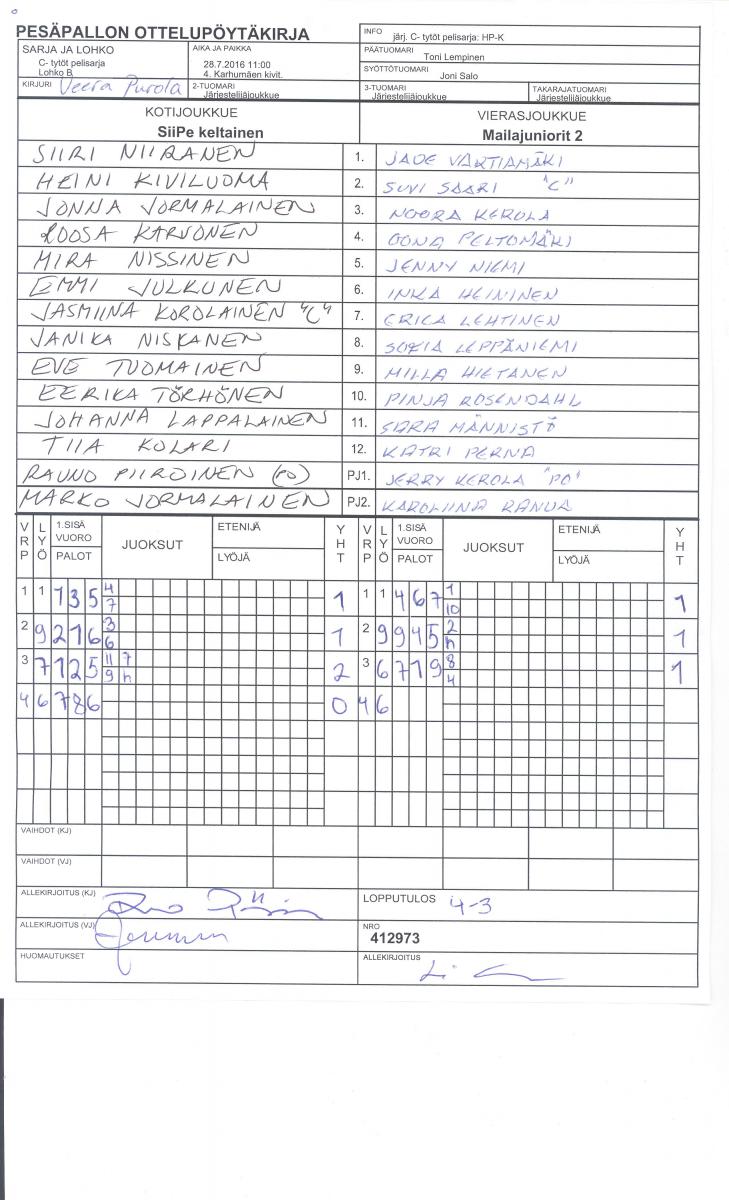 PESÄPALLON OTTELUPÖYTÄKIRJA
INFO järj. C- tytöt pelisarja: HP-K
SARJA JA LOHKO
C- tytöt pelisarja
Lohko B
AIKA JA PAIKKA
28.7.2016 11:00
4. Karhumäen kivit.
PÄÄTUOMARI Toni Lempinen
SYÖTTÖTUOMARI Joni Salo
KIRJURI Veera Purola
2-TUOMARI Järjestelijäjoukkue
3-TUOMARI Järjestelijäjoukkue
TAKARAJATUOMARI Järjestelijäjoukkue
KOTIJOUKKUE
SiiPe keltainen
VIERASJOUKKUE
Mailajuniorit 2
SIIRI NIIRANEN 1. JADE VARTIAMÄKI
HEINI KIVILUOMA 2. SUVI SAARI "C"
JONNA JORMALAINEN 3. NOORA KEROLA
ROOSA KARVONEN 4. OONA PELTOMÄKI
MIRA NISSINEN 5. JENNY NIEMI
EMMI JULKUNEN 6. INKA HEININEN
JASMIINA KOROLAINEN "C" 7. ERICA LEHTINEN
JANIKA NISKANEN 8. SOFIA LEPPÄNIEMI
EVE TUOMAINEN 9. MILLA HIETANEN
EERIKA TÖRHÖNEN 10. PINJA ROSENDAHL
JOHANNA LAPPALAINEN 11. SARA MÄNNISTÖ
TIIA KOLARI 12. KATRI PERNA
RAUNO PIIROINEN (PO) PJ1. JERRY KEROLA "PO"
MARKO JORMALAINEN PJ2. KAROLIINA RANUA
VRP LYÖ 1.SISÄ VUORO PALOT JUOKSUT ETENIJÄ LYÖJÄ YHT VRP LYÖ 1.SISÄ VUORO PALOT JUOKSUT ETENIJÄ LYÖJÄ YHT
1 1 1 3 5 4/7 1 1 1 4 6 7 1/10 1
2 9 2 1 6 3/6 1 2 9 9 4 5 2/n 1
3 7 1 2 5 11/9 7/n 2 3 6 7 1 9 8/4 1
4 6 7 8 6 0 4 6
VAIHDOT (KJ)
VAIHDOT (VJ)
ALLEKIRJOITUS (KJ)
LOPPUTULOS 4-3
ALLEKIRJOITUS (VJ)
NRO
412973
HUOMAUTUKSET
ALLEKIRJOITUS